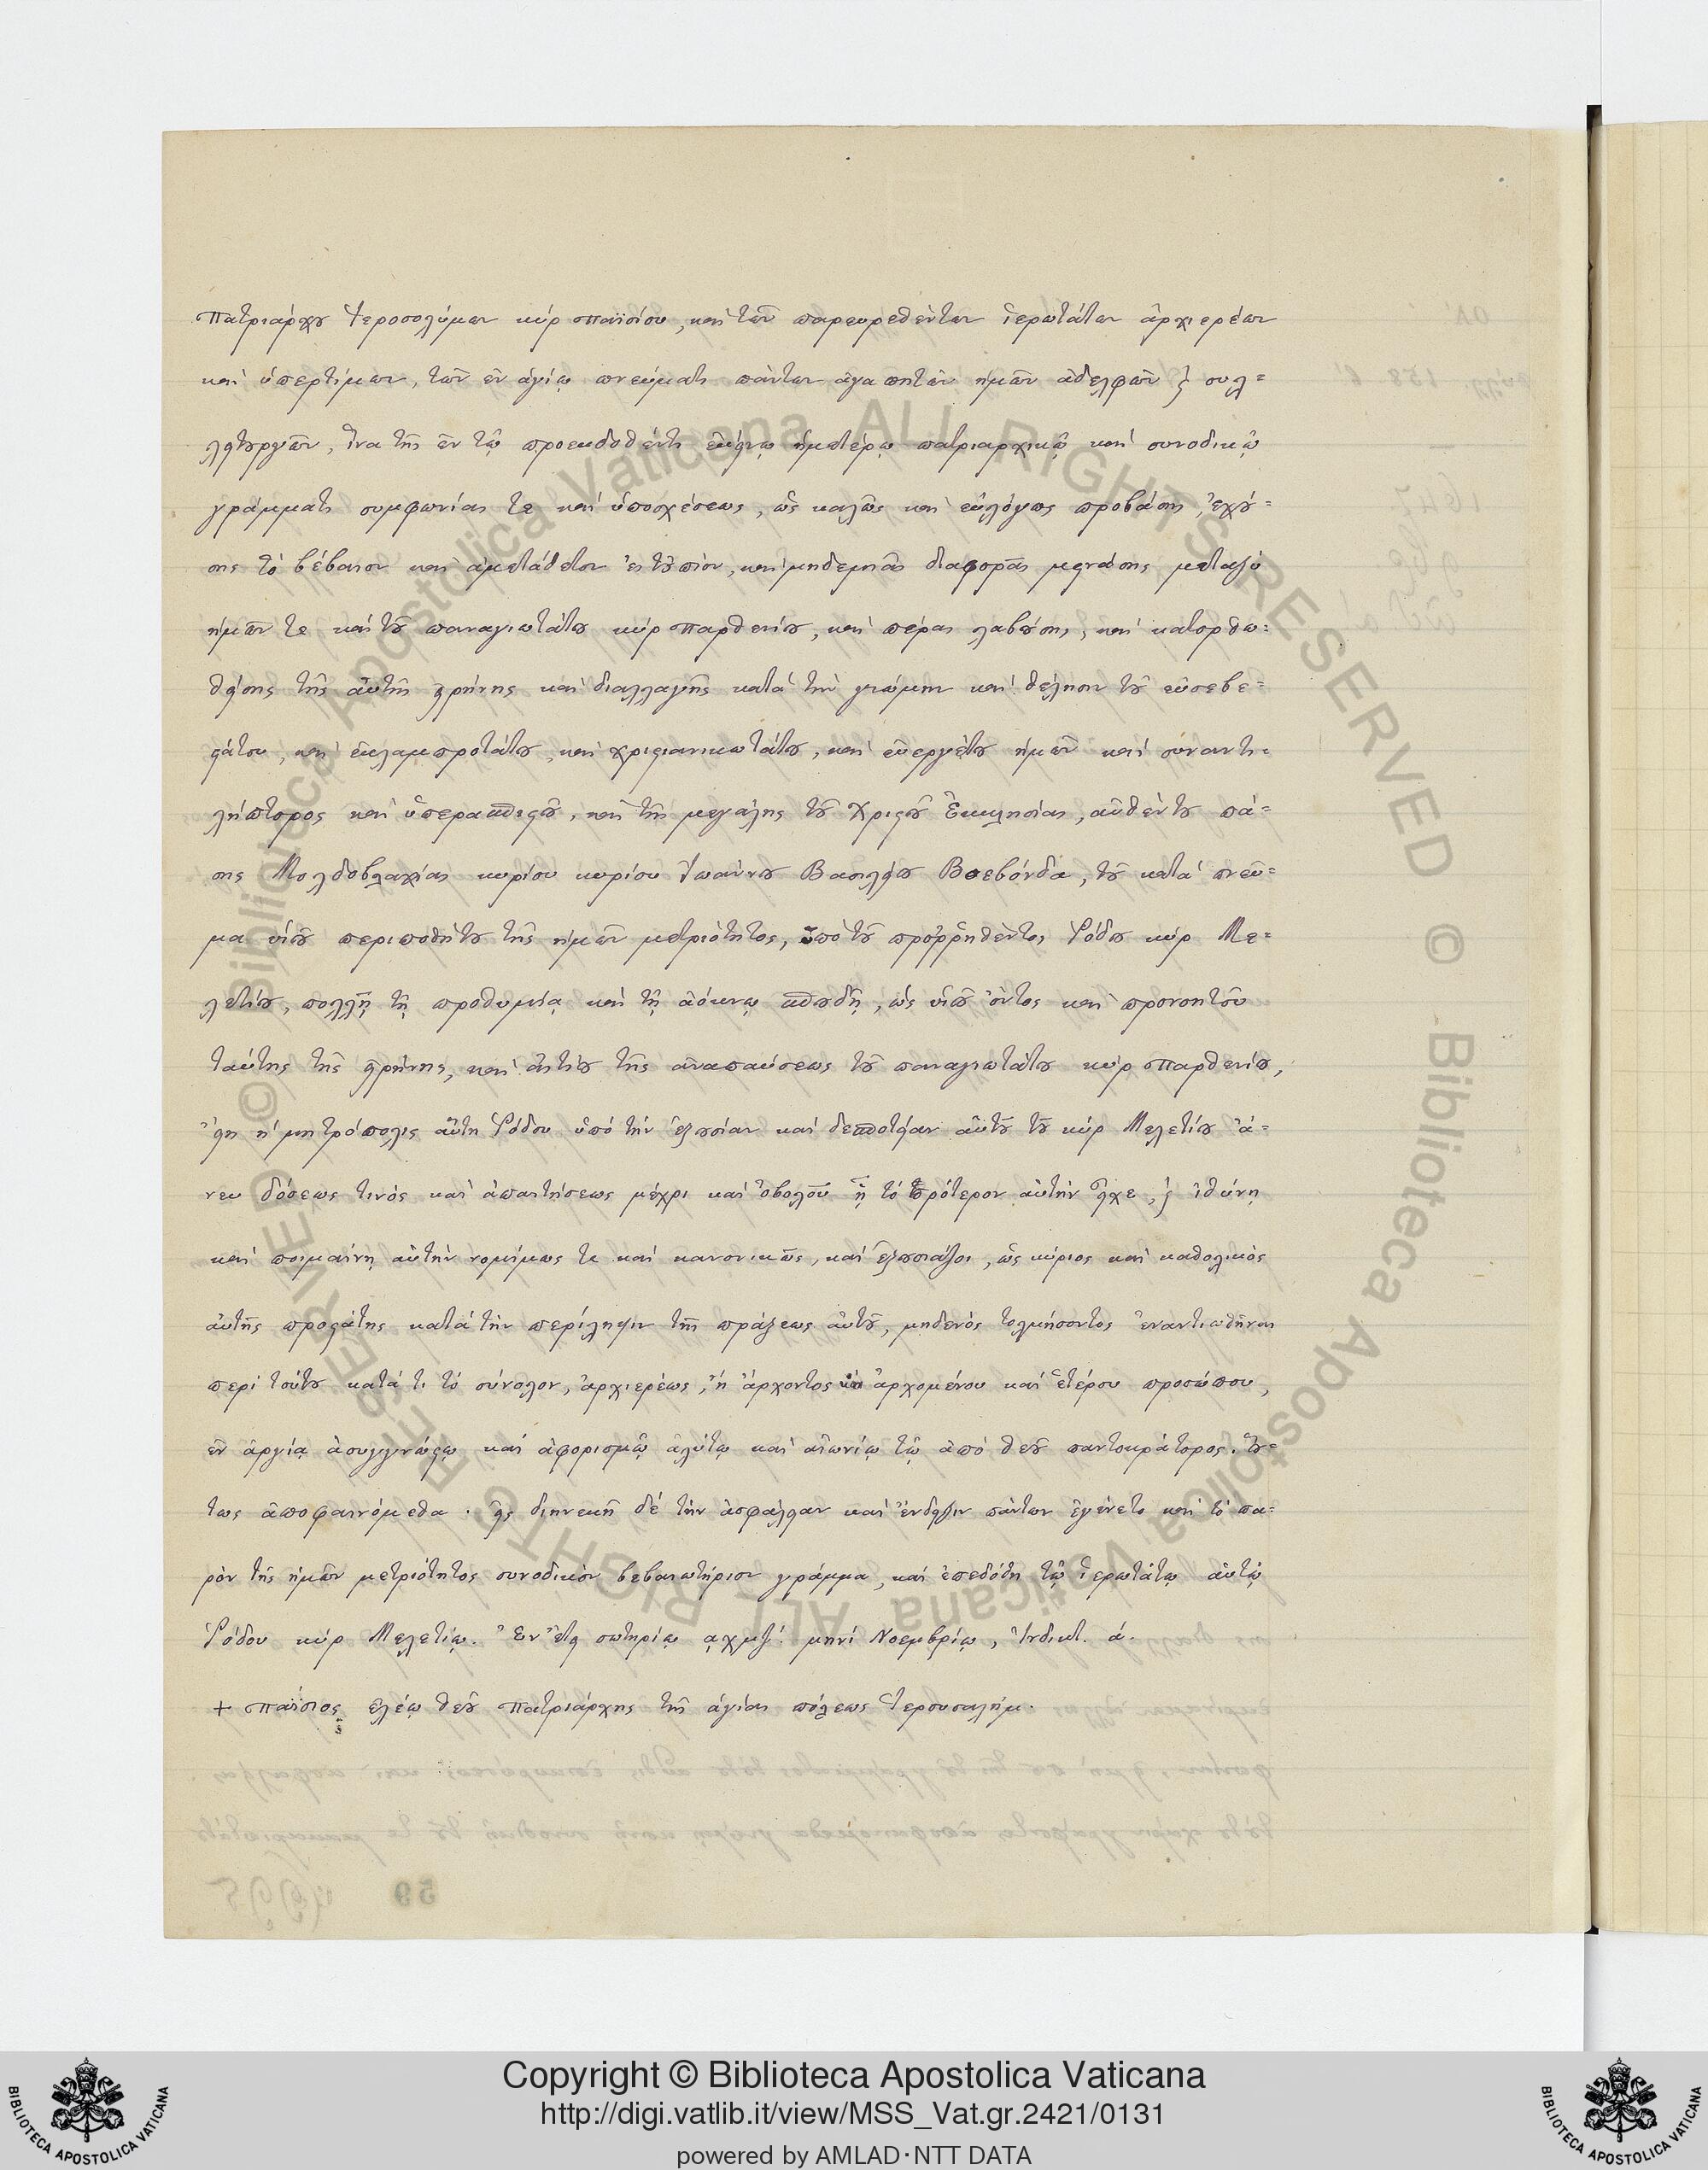 Πατριάρχου Ἱεροσολύμων κὺρ Παϊσίου, καὶ τῶν παρευρεθέντων ἱερωτάτων ἀρχιερέων
καὶ ὑπερτίμων, τῶν ἐν ἁγίῳ πνεύματι πάντων ἀγαπητῶν ἡμῶν ἀδελφῶν καὶ συλ=
λειτουργῶν, ἵνα τῆς ἐν τῷ προεκδοθέντι ἐκείνῳ ἡμετέρῳ πατριαρχικῷ καὶ συνοδικῷ
γράμματι συμφωνίας τε καὶ ὑποσχέσεως, ὡς καλῶς καὶ εὐλόγως προβάσης, ἐχού=
σης τὸ βέβαιον καὶ ἀμετάθετον εἰς τοὐπιόν, καὶ μηδεμιᾶς διαφορᾶς μεινάσης μεταξὺ
ἡμῶν τε καὶ τοῦ παναγιωτάτου κὺρ Παρθενίου, καὶ πέρας λαβούσης, καὶ κατορθω=
θείσης τῆς αὐτῆς εἰρήνης καὶ διαλλαγῆς κατὰ τὴν γνώμην καὶ θέλησιν τοῦ εὐσεβε=
στάτου, καὶ ἐκλαμπροτάτου, καὶ χριστιανικωτάτου, καὶ εὐεργέτου ἡμῶν καὶ συναντι=
λήπτορος καὶ ὑπερασπιστοῦ, καὶ τῆς μεγάλης τοῦ Χριστοῦ Ἐκκλησίας, αὐθέντου πά=
σης Μολδοβλαχίας κυρίου κυρίου Ἰωάννου Βασιλείου Βοεβόνδα, τοῦ κατὰ πνεῦ=
μα υἱοῦ περιποθήτου τῆς ἡμῶν μετριότητος, ὑπὸ τοῦ προρρηθέντος Ῥόδου κὺρ Με=
λετίου, πολλῇ τῇ προθυμίᾳ καὶ τῇ ἀόκνῳ σπουδῇ, ὡς υἱοῦ ὄντος καὶ προνοητοῦ
ταύτης τῆς εἰρήνης, καὶ αἰτίου τῆς ἀναπαύσεως τοῦ παναγιωτάτου κὺρ Παρθενίου,
εἴη ἡ μητρόπολις αὕτη Ῥόδου ὑπὸ τὴν ἐξουσίαν καὶ δεσποτείαν αὐτοῦ τοῦ κὺρ Μελετίου ἄ=
νευ δόσεως τινὸς καὶ ἀπαιτήσεως μέχρι καὶ ὀβολοῦ ᾗ τὸ πρότερον αὐτὴν εἶχε, καὶ ἰθύνῃ
καὶ ποιμαίνῃ αὐτὴν νομίμως τε καὶ κανονικῶς, καὶ ἐξουσιάζοι, ὡς κύριος καὶ καθολικὸς
αὐτῆς προστάτης κατὰ τὴν περίληψιν τῆς πράξεως αὐτοῦ, μηδενὸς τολμήσοντος ἐναντιωθῆναι
περὶ τούτου κατά τι τὸ σύνολον, ἀρχιερέως, ἢ ἄρχοντος καὶ ἀρχομένου καὶ ἑτέρου προσώπου,
ἐν ἀργίᾳ ἀσυγγνώστῳ καὶ ἀφορισμῷ ἀλύτῳ καὶ αἰωνίῳ τῷ ἀπὸ θεοῦ παντοκράτορος. Οὕ=
τως ἀποφαινόμεθα. εἰς διηνεκῆ δὲ τὴν ἀσφάλειαν καὶ ἔνδειξιν πάντων ἐγένετο καὶ τὸ πα=
ρὸν τῆς ἡμῶν μετριότητος συνοδικὸν βεβαιωτήριον γράμμα, καὶ ἐπεδόθη τῷ ἱερωτάτῳ αὐτῷ
Ῥόδου κὺρ Μελετίῳ. Ἐν ἔτει σωτηρίῳ αχμζʹ. μηνὶ Νοεμβρίῳ, Ἰνδικτ. ά.
+ Παΐσιος ἐλέῳ θεοῦ Πατριάρχης τῆς ἁγίας πόλεως Ἱερουσαλήμ.
59
© Biblioteca Apostolica Vaticana ALL RIGHTS RESERVED © Biblioteca Apostolica Vaticana ALL RIGHTS RESERVED
Copyright © Biblioteca Apostolica Vaticana
http://digi.vatlib.it/view/MSS_Vat.gr.2421/0131
powered by AMLAD·NTT DATA
BIBLIOTECA APOSTOLICA VATICANA
BIBLIOTECA APOSTOLICA VATICANA